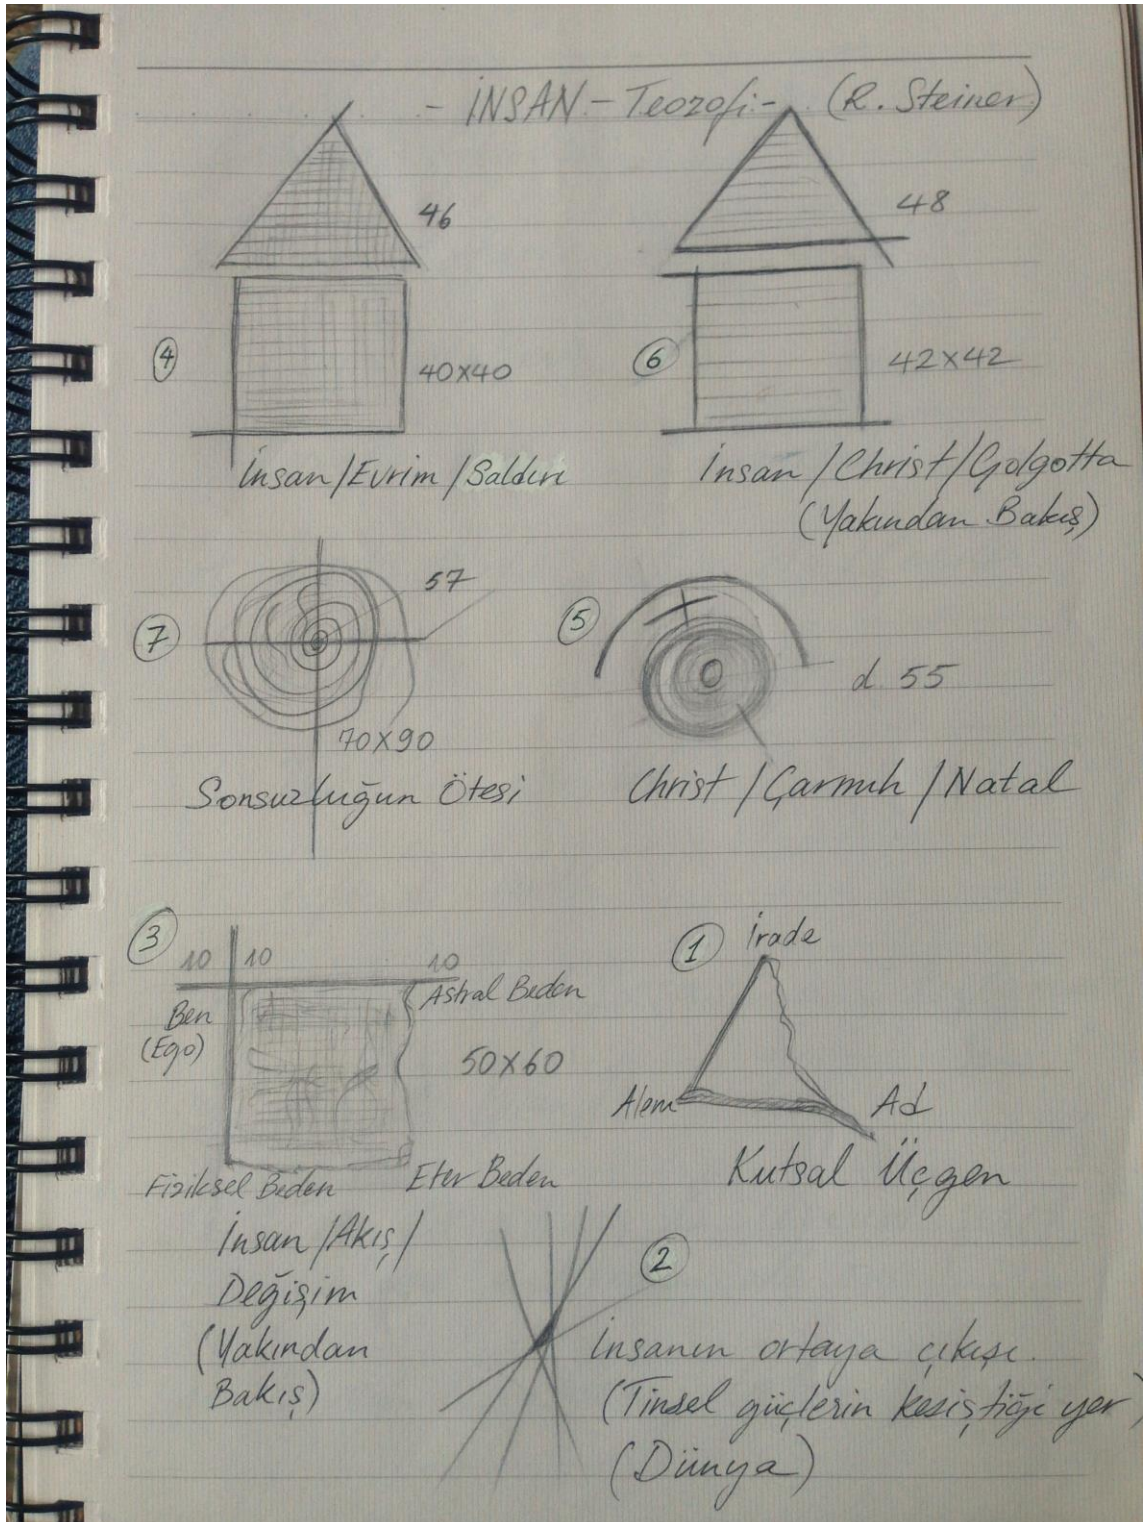 - İNSAN - Teozofi - (R. Steiner)
46
40x40
4
İnsan/Evrim/Saldırı
48
42x42
6
İnsan/Christ/Golgotta
(Yakından Bakış)
7
57
70x90
Sonsuzluğun Ötesi
5
d 55
Christ/Çarmıh/Natal
3
10 10 10
Ben
(Ego)
Astral Beden
50x60
Fiziksel Beden Eter Beden
İnsan/Akış/
Değişim
(Yakından
Bakış)
1
İrade
Alem Ad
Kutsal Üçgen
2
İnsanın ortaya çıkışı.
(Tinsel güçlerin kesiştiği yer)
(Dünya)